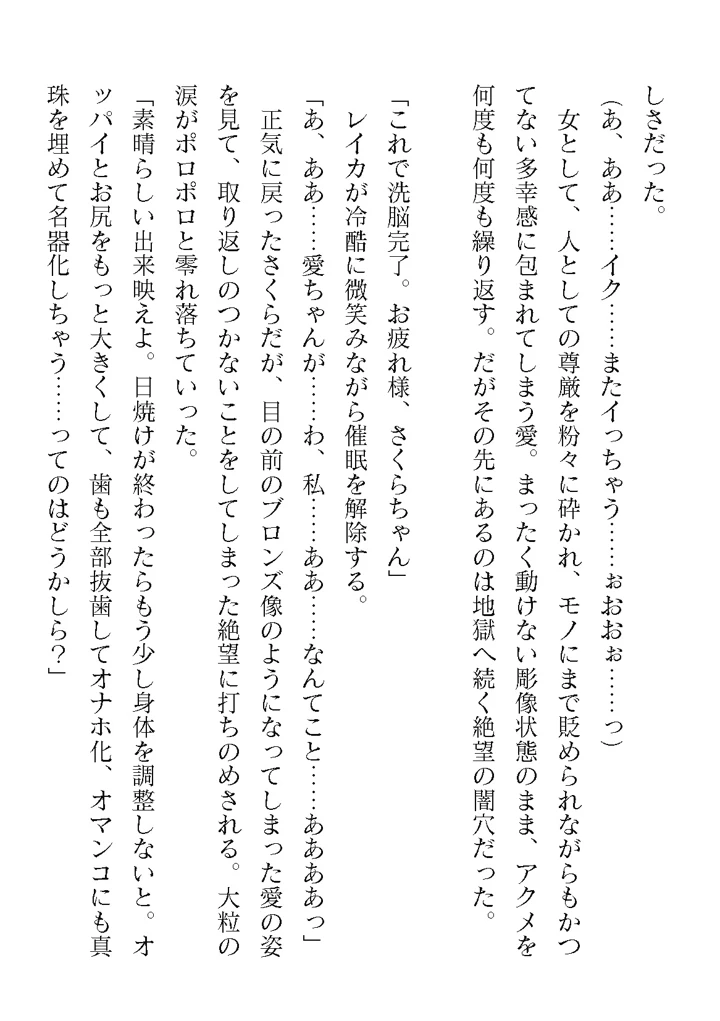 しさだった。
(あ、ああ……イク……またイっちゃう……ぉおおぉ……っ)
　女として、人としての尊厳を粉々に砕かれ、モノにまで貶められながらもかつ
てない多幸感に包まれてしまう愛。まったく動けない彫像状態のまま、アクメを
何度も何度も繰り返す。だがその先にあるのは地獄へ続く絶望の闇穴だった。
「これで洗脳完了。お疲れ様、さくらちゃん」
　レイカが冷酷に微笑みながら催眠を解除する。
「あ、ああ……愛ちゃんが……わ、私……ああ……なんてこと……ああああっ」
　正気に戻ったさくらだが、目の前のブロンズ像のようになってしまった愛の姿
を見て、取り返しのつかないことをしてしまった絶望に打ちのめされる。大粒の
涙がポロポロと零れ落ちていった。
「素晴らしい出来映えよ。日焼けが終わったらもう少し身体を調整しないと。オ
ッパイとお尻をもっと大きくして、歯も全部抜歯してオナホ化、オマンコにも真
珠を埋めて名器化しちゃう……ってのはどうかしら？」